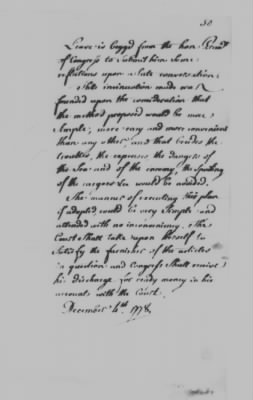 50
Leave is begg'd from the hon. Presid.t
of Congress to submit him some
reflections upon a late conversation.
This insinuation made was
founded upon the consideration that
the method proposed would be more
simple, more easy and more convenient
than any other and that besides the
troubles, the expenses the dangers of
the Sea and of the enemy, the spoiling
of the cargoes &c would be avoided.
The manner of executing this plan
if adopted would be very simple and
attended with no inconveniency. The
Court shall take upon herself to
satisfy the furnisher of the articles
in question and Congress shall receive
his discharge for ready money in his
accounts with the Court.
December 4th 1778.